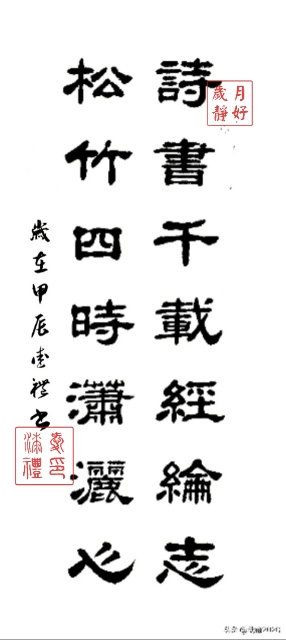 詩書千載經綸志
松竹四時瀟灑心
歲在甲辰禮書
月好
歲靜